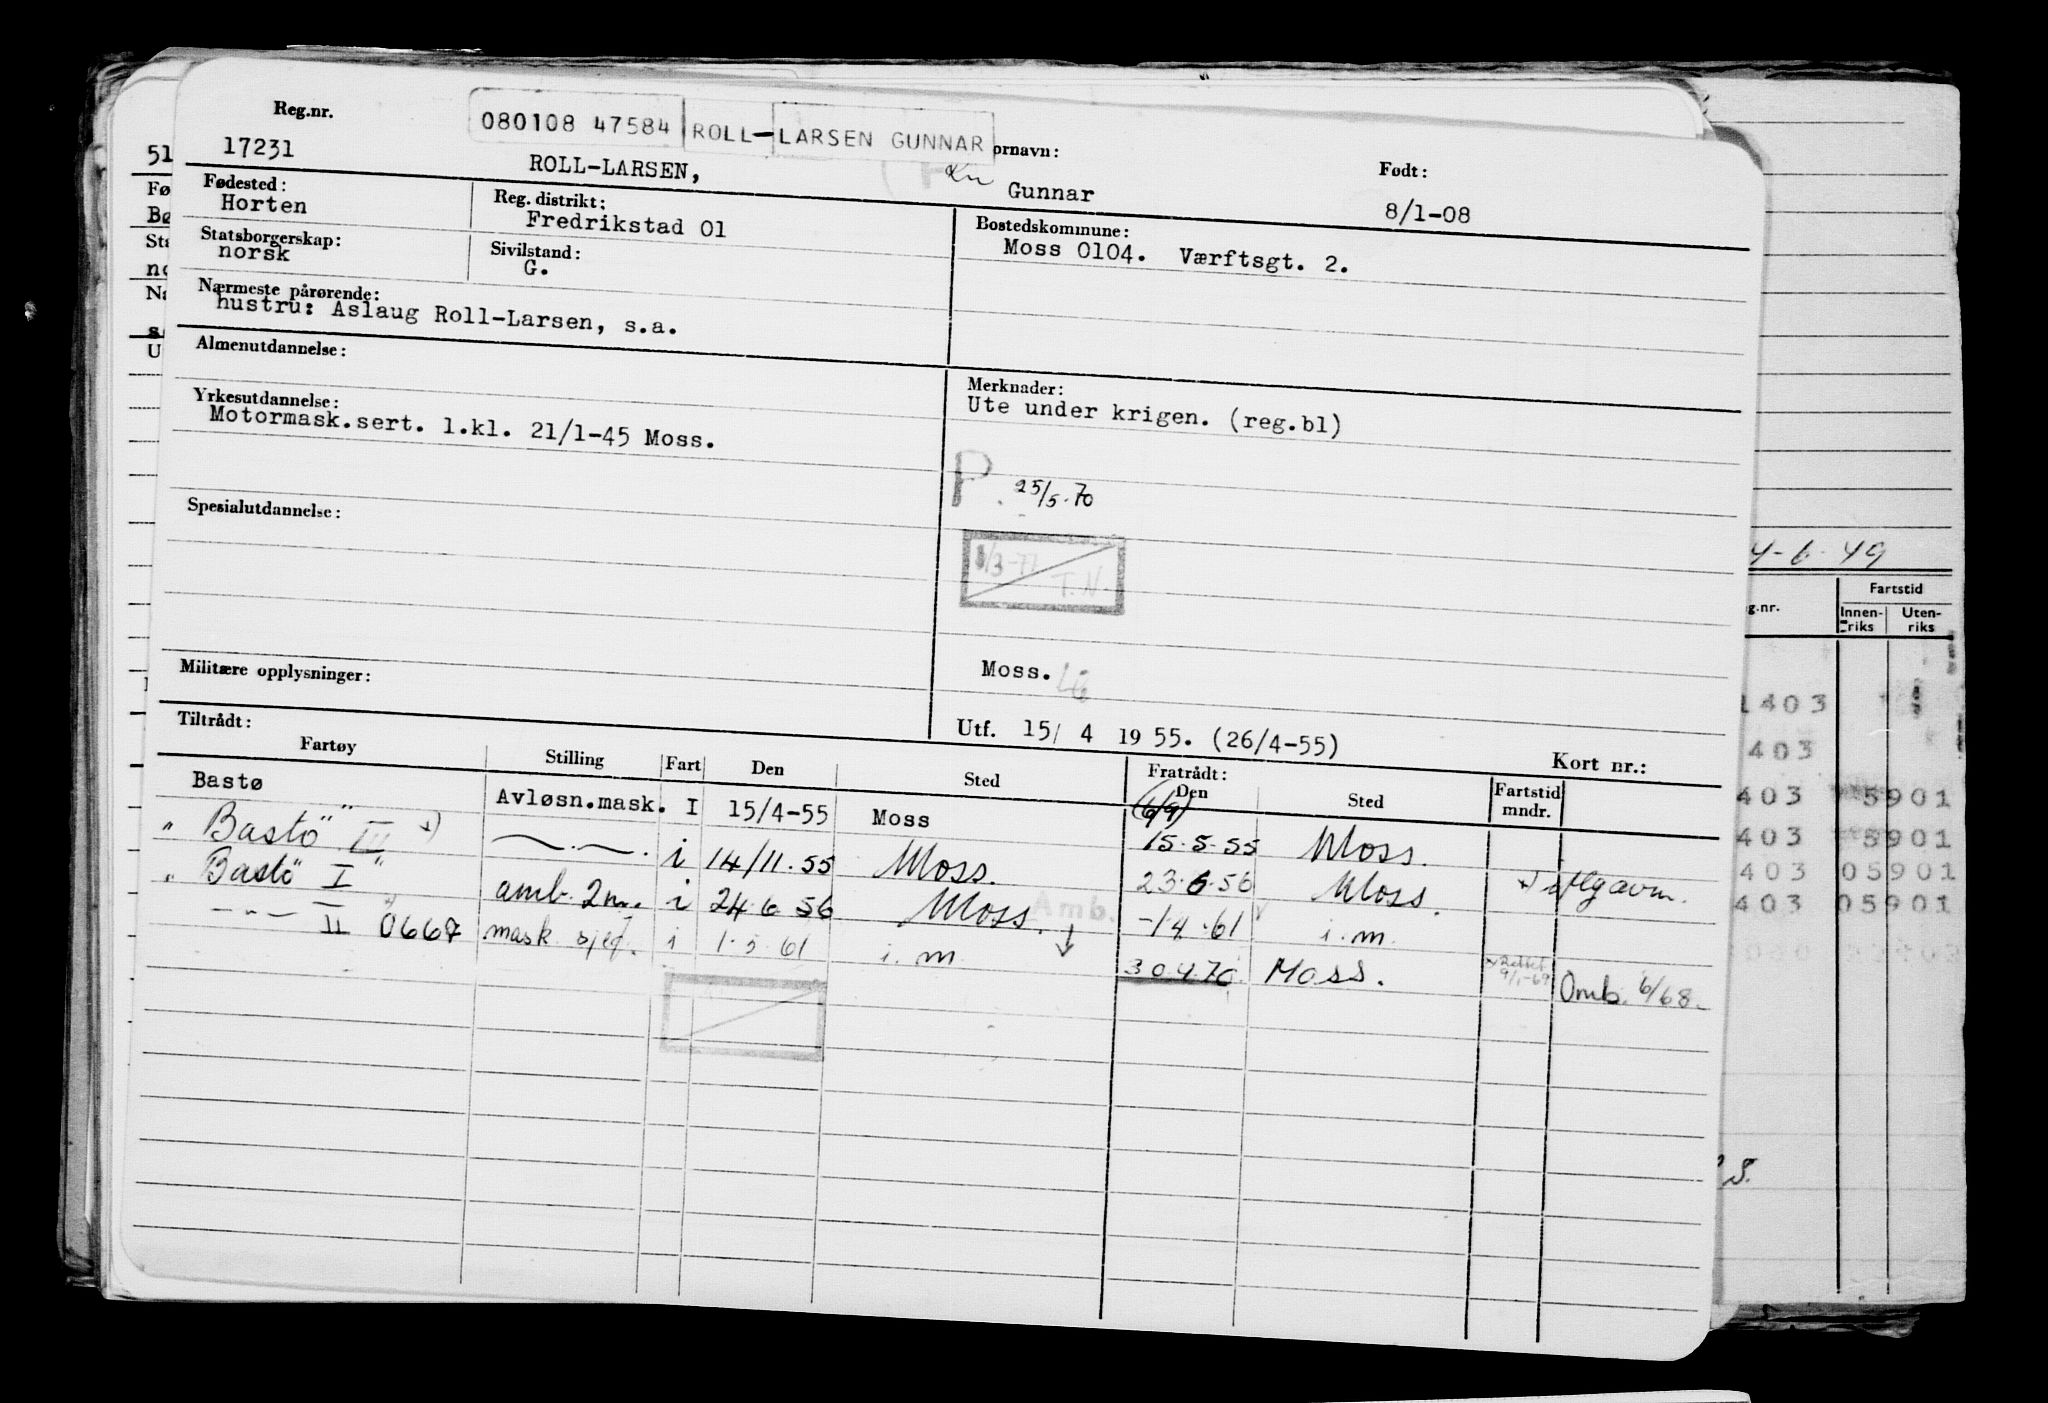 Reg.nr.
080108 47584 ROLL-LARSEN GUNNAR
ornavn:
Født:
17231
ROLL-LARSEN,
Gunnar
8/1-08
Fødested:
Horten
Reg. distrikt:
Fredrikstad 01
Bostedskommune:
Moss 0104. Værftsgt. 2.
Statsborgerskap:
norsk
Sivilstand:
G.
Nærmeste pårørende:
hustru: Aslaug Roll-Larsen, s.a.
Almenutdannelse:
Merknader:
Ute under krigen. (reg.bl)
Yrkesutdannelse:
Motormask.sert. 1.kl. 21/1-45 Moss.
P. 25/5.70
Spesialutdannelse:
1/3-77
T.N.
Militære opplysninger:
Moss.
Utf. 15/ 4 1955. (26/4-55)
Tiltrådt:
Fratrådt:
Kort nr.:
Fartøy Stilling Fart Den Sted Den Sted Fartstid mndr.
Bastø Avløsn.mask. I 15/4-55 Moss (6/9) 15.5.55 Moss.
"Bastö III" x) —.—. i 14/11.55 Moss. 23.6.56 Moss.
"Bastö I" amb. 2m. i 24.6.56 Moss. Amb. -1.4.61 i.m.
—"— II 0667 mask. sjef. i 1.5.61 i.m. 30.4.70 Moss. Omb. 6/68.
51
Fø
Bø
Sta
no
Næ
s
U
4-6-49
g.nr.
Fartstid
Innen-riks
Uten-riks
1403
403
403 5901
403 5901
403 05901
403 05901
S.